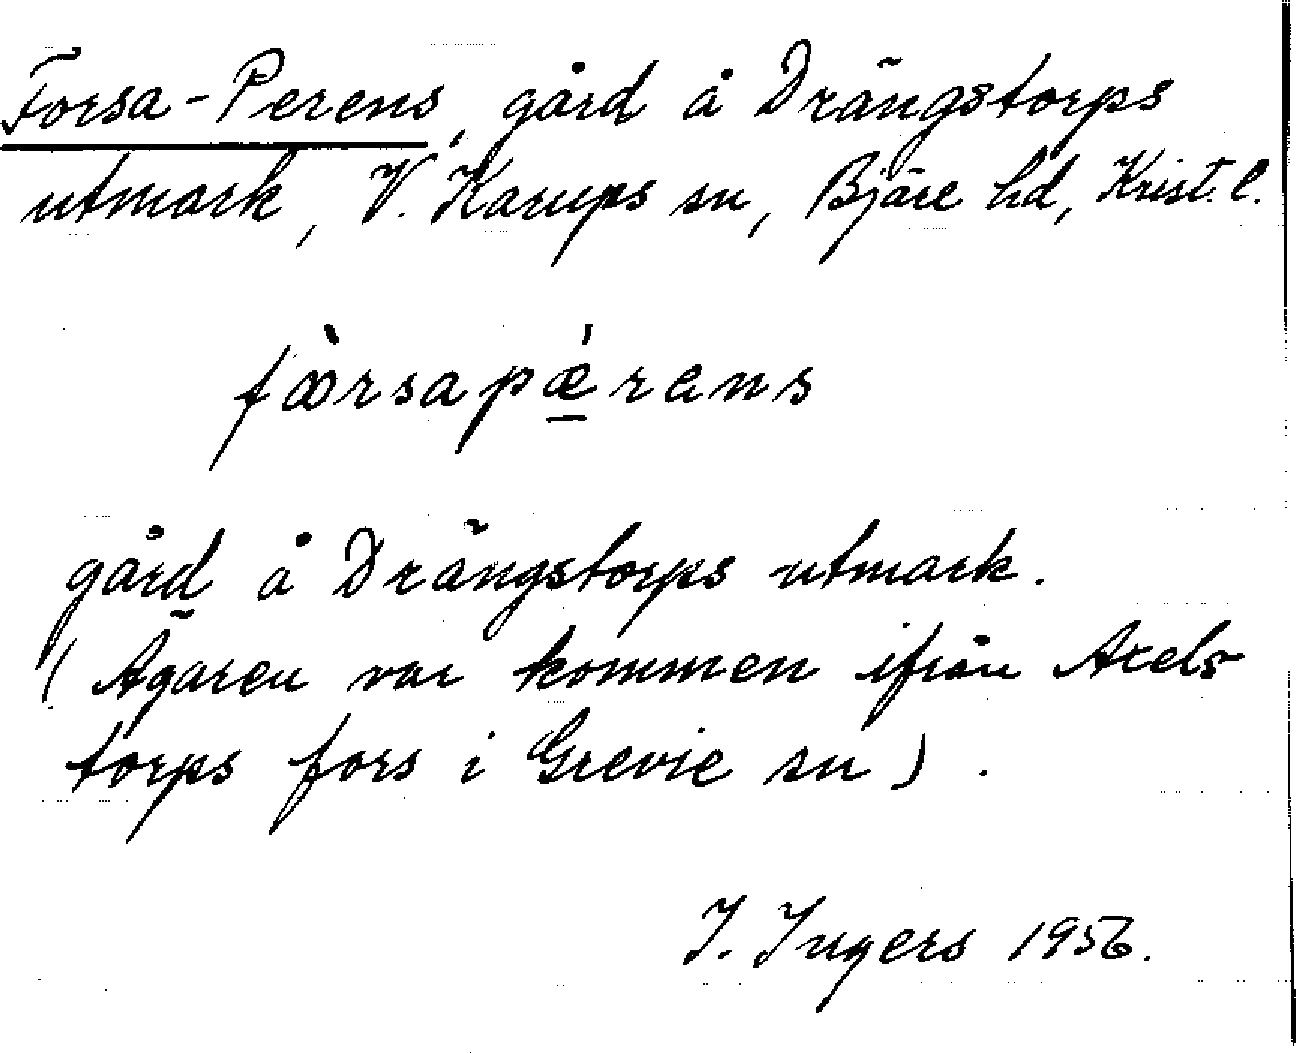 Forsa-Perens, gård å Drängstorps
utmark, V. Karups sn, Bjäre hd, Krist. l.
fòrsapǽ̱rens
gård å Drängstorps utmark.
(Ägaren var kommen ifrån Axels-
torps fors i Grevie sn).
I. Ingers 1956.